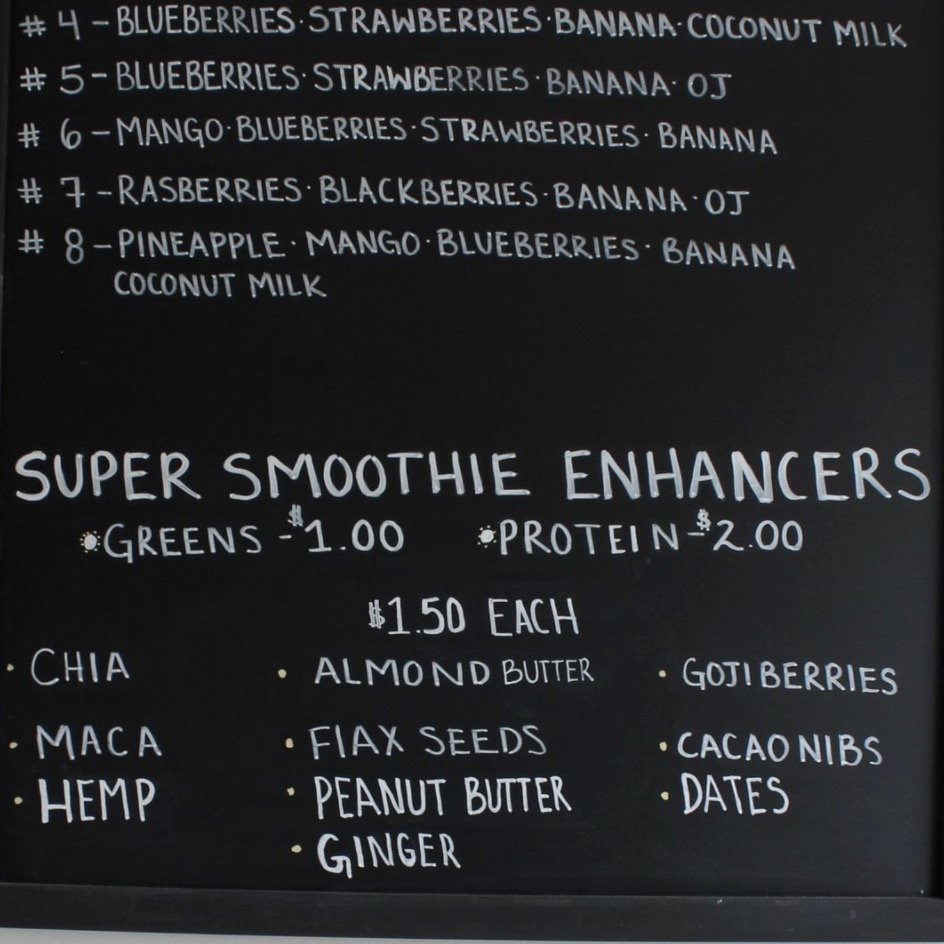 # 4 - BLUEBERRIES · STRAWBERRIES · BANANA · COCONUT MILK
# 5 - BLUEBERRIES · STRAWBERRIES · BANANA · OJ
# 6 - MANGO · BLUEBERRIES · STRAWBERRIES · BANANA
# 7 - RASBERRIES · BLACKBERRIES · BANANA · OJ
# 8 - PINEAPPLE · MANGO · BLUEBERRIES · BANANA
COCONUT MILK
SUPER SMOOTHIE ENHANCERS
GREENS - $1.00 PROTEIN - $2.00
$1.50 EACH
· CHIA · ALMOND BUTTER · GOJI BERRIES
· MACA · FlAX SEEDS · CACAO NIBS
· HEMP · PEANUT BUTTER · DATES
· GINGER